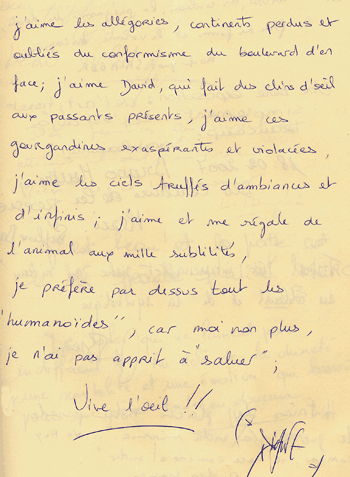 j'aime les allégories, continents perdus et
oubliés du conformisme du boulevard d'en
face; j'aime David, qui fait des clins d'œil
aux passants présents, j'aime ces
gourgandines exaspérantes et violacées,
j'aime les ciels truffés d'ambiances et
d'infinis; j'aime et me régale de
l'animal aux mille subtilités,
je préfère par dessus tout les
"humanoïdes", car moi non plus,
je n'ai pas apprit à "saluer";
Vive l'oeil !!